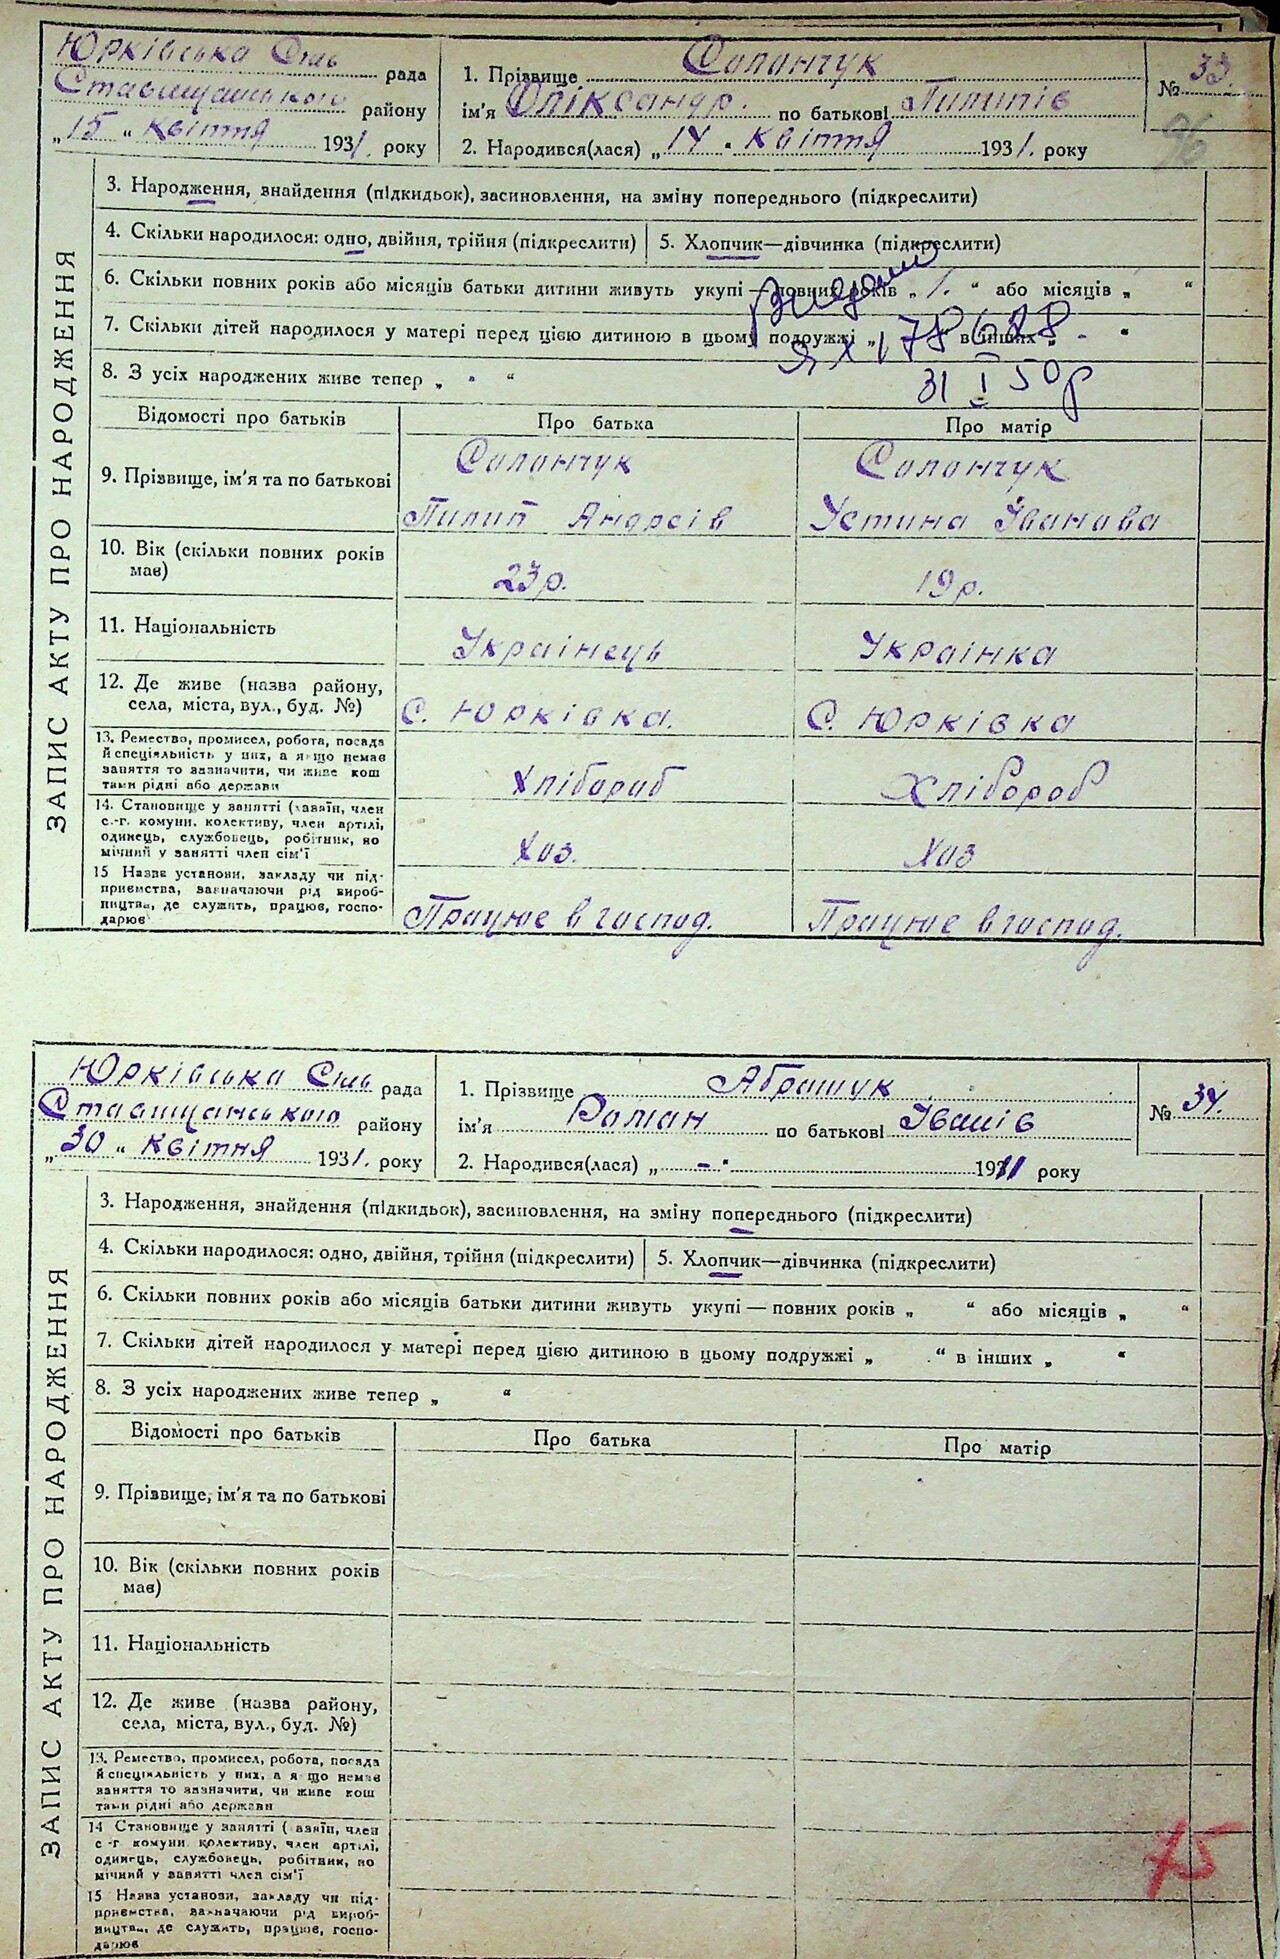 Юрківська Сіль рада
Ставищанського району
„15“ Квіття 1931. року
1. Прізвище Саланчук
ім'я Оліксандр. по батькові Пилипів
2. Народився(лася) „14“ Квіття 1931. року
№ 33.
96
ЗАПИС АКТУ ПРО НАРОДЖЕННЯ
3. Народження, знайдення (підкидьок), засиновлення, на зміну попереднього (підкреслити)
4. Скільки народилося: одно, двійня, трійня (підкреслити) 5. Хлопчик—дівчинка (підкреслити)
6. Скільки повних років або місяців батьки дитини живуть укупі — повних років „1.“ або місяців „ “
7. Скільки дітей народилося у матері перед цією дитиною в цьому подружжі „ “ в інших „ - “
8. З усіх народжених живе тепер „ “
178688
31 I 50р
Відомості про батьків Про батька Про матір
9. Прізвище, ім'я та по батькові
Саланчук Саланчук
Пилип Андреів Устина Іванова
10. Вік (скільки повних років мав)
23р. 19р.
11. Національність
Украінець Украінка
12. Де живе (назва району, села, міста, вул., буд. №)
С. Юрківка. С. Юрківка
13. Ремество, промисел, робота, посада й спеціяльність у них, а якщо немає заняття то зазначити, чи живе коштами рідні або держави
Хлібароб Хлібороб
14. Становище у занятті (хазяїн, член с.-г. комуни, колективу, член артілі, одинець, службовець, робітник, помічний у занятті член сім'ї
Хаз. Хаз
15 Назва установи, закладу чи підприємства, зазначаючи рід виробництва, де служить, працює, господарює
Працює в госпад. Працює в госпад.
Юрківська Сіль рада
Ставищанського району
„30“ Квітня 1931. року
1. Прізвище Абрамчук
ім'я Роман по батькові Іванів
2. Народився(лася) „ - “ 1911 року
№ 34.
ЗАПИС АКТУ ПРО НАРОДЖЕННЯ
3. Народження, знайдення (підкидьок), засиновлення, на зміну попереднього (підкреслити)
4. Скільки народилося: одно, двійня, трійня (підкреслити) 5. Хлопчик—дівчинка (підкреслити)
6. Скільки повних років або місяців батьки дитини живуть укупі — повних років „ “ або місяців „ “
7. Скільки дітей народилося у матері перед цією дитиною в цьому подружжі „ “ в інших „ “
8. З усіх народжених живе тепер „ “
Відомості про батьків Про батька Про матір
9. Прізвище, ім'я та по батькові
10. Вік (скільки повних років
мав)
11. Національність
12. Де живе (назва району,
села, міста, вул., буд. №)
13. Ремество, промисел, робота, посада
й спеціяльність у них, а якщо немає
заняття то зазначити, чи живе кош
тами рідні або держави
14 Становище у занятті (хазяїн, член
с-г комуни колективу, член артілі,
одинець, службовець, робітник, по
мічний у занятті член сім'ї
15 Назва установи, закладу чи під-
приємства, зазначаючи рід вироб-
ництва, де служить, працює, госпо-
дарює
75